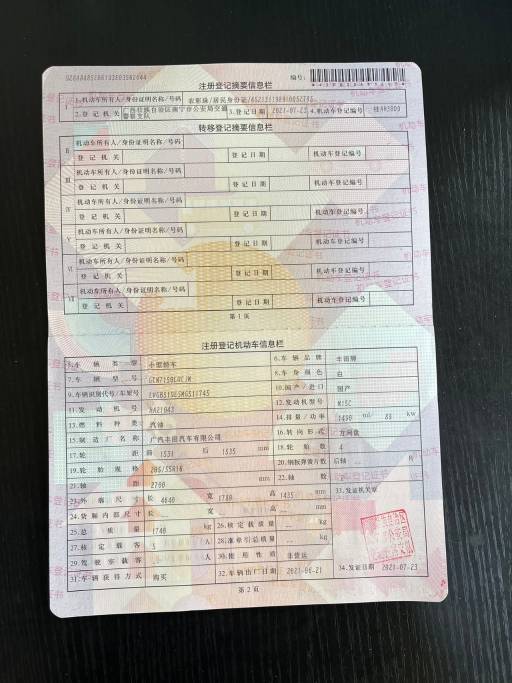 编号:
注册登记摘要信息栏
I 1.机动车所有人/身份证明名称/号码
2.登记机关 广西壮族自治区南宁市公安局交通警察支队 3.登记日期 2021-07-23 4.机动车登记编号
转移登记摘要信息栏
II 机动车所有人/身份证明名称/号码
登记机关 登记日期 机动车登记编号
III 机动车所有人/身份证明名称/号码
登记机关 登记日期 机动车登记编号
IV 机动车所有人/身份证明名称/号码
登记机关 登记日期 机动车登记编号
V 机动车所有人/身份证明名称/号码
登记机关 登记日期 机动车登记编号
VI 机动车所有人/身份证明名称/号码
登记机关 登记日期 机动车登记编号
VII 机动车所有人/身份证明名称/号码
登记机关 登记日期 机动车登记编号
第1页
注册登记机动车信息栏
5.车辆类型 小型轿车 6.车辆品牌 丰田牌
7.车辆型号 8.车身颜色 白
9.车辆识别代号/车架号 10.国产/进口 国产
11.发动机号 12.发动机型号 M15C
13.燃料种类 汽油 14.排量/功率 1490 ml/ 89 kw
15.制造厂名称 广汽丰田汽车有限公司 16.转向形式 方向盘
17.轮距 前 1531 后 1535 mm 18.轮胎数 4
19.轮胎规格 205/55R16 20.钢板弹簧片数 后轴 -- 片
21.轴距 2700 mm 22.轴数
23.外廓尺寸 长 4640 宽 1780 高 1435 mm 33.发证机关章
24.货厢内部尺寸 长 宽 高 mm
25.总质量 1740 kg 26.核定载质量 -- kg
27.核定载客 5 人 28.准牵引总质量 -- kg
29.驾驶室载客 -- 人 30.使用性质 非营运
31.车辆获得方式 购买 32.车辆出厂日期 2021-06-21 34.发证日期 2021-07-23
第2页